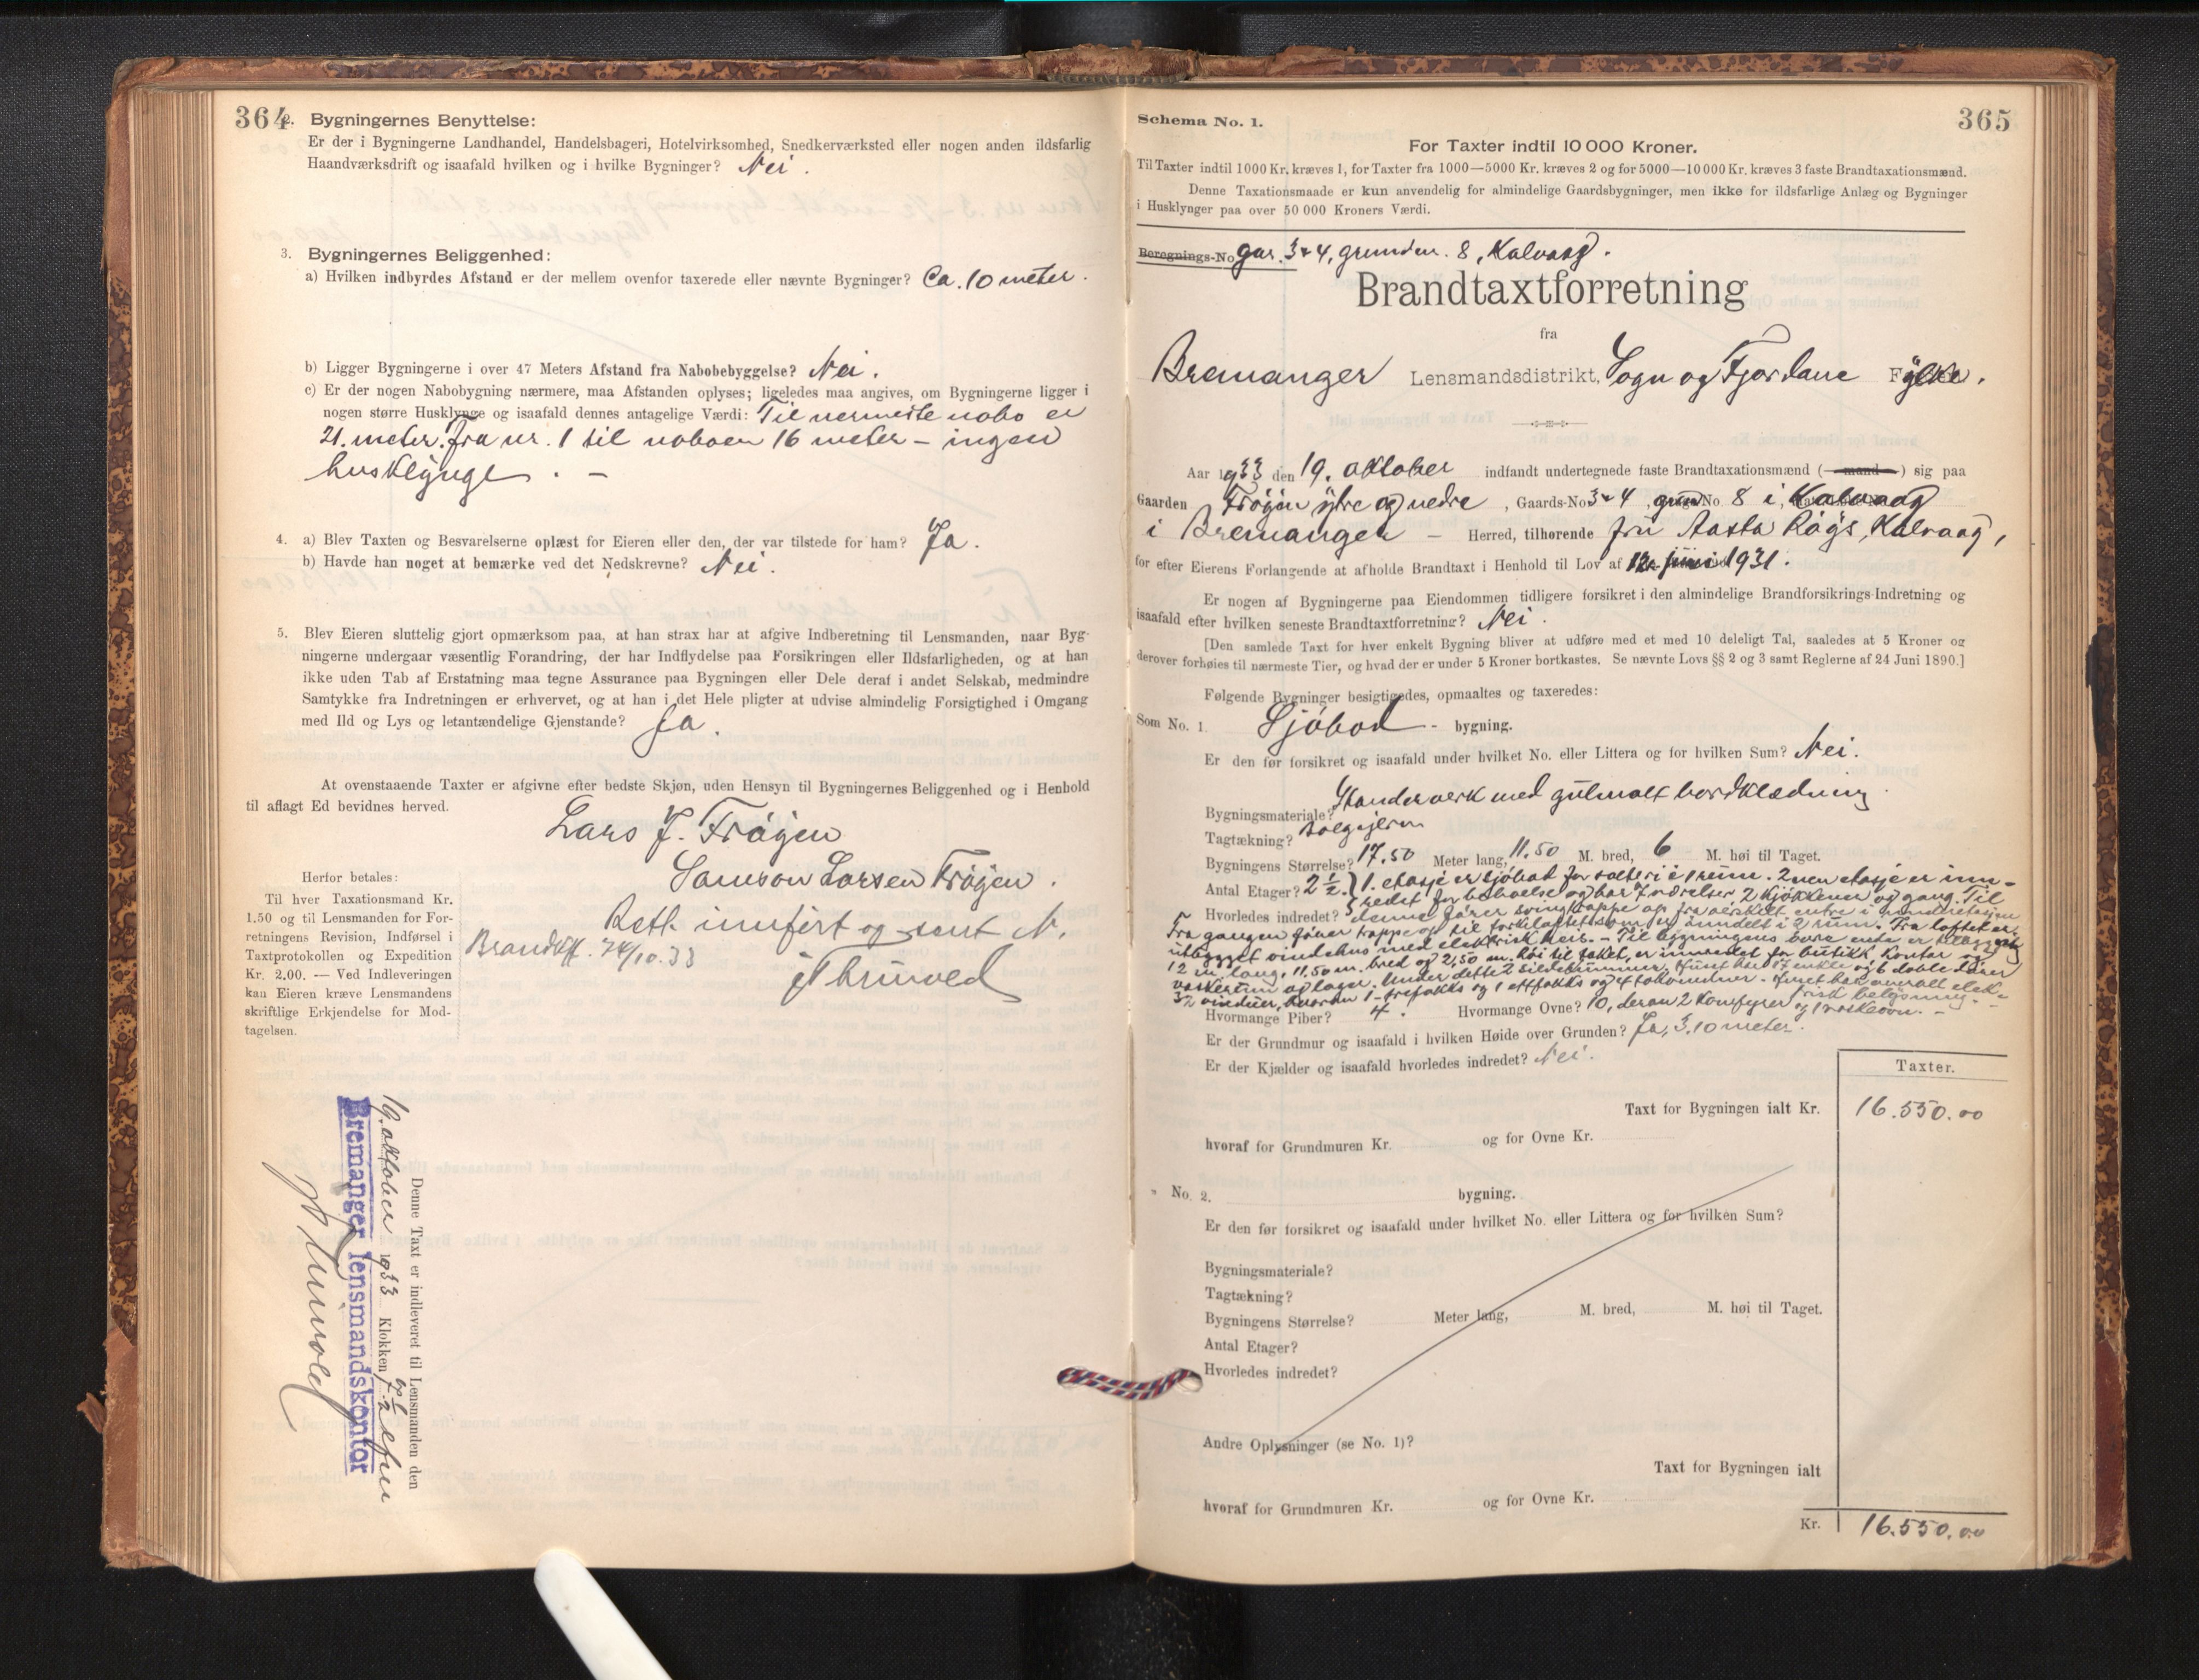 364
2. Bygningernes Benyttelse:
Er der i Bygningerne Landhandel, Handelsbageri, Hotelvirksomhed, Snedkerværksted eller nogen anden ildsfarlig
Haandværksdrift og isaafald hvilken og i hvilke Bygninger? Nei.
3. Bygningernes Beliggenhed:
a) Hvilken indbyrdes Afstand er der mellem ovenfor taxerede eller nævnte Bygninger? Ca. 10 meter.
b) Ligger Bygningerne i over 47 Meters Afstand fra Nabobebyggelse? Nei.
c) Er der nogen Nabobygning nærmere, maa Afstanden oplyses; ligeledes maa angives, om Bygningerne ligger i
nogen større Husklynge og isaafald dennes antagelige Værdi: Til nermeste nabo er
21. meter. Fra nr. 1 til naboen 16 meter – ingen
husklynge. –
4. a) Blev Taxten og Besvarelserne oplæst for Eieren eller den, der var tilstede for ham? Ja.
b) Havde han noget at bemærke ved det Nedskrevne? Nei.
5. Blev Eieren sluttelig gjort opmærksom paa, at han strax har at afgive Indberetning til Lensmanden, naar Byg-
ningerne undergaar væsentlig Forandring, der har Indflydelse paa Forsikringen eller Ildsfarligheden, og at han
ikke uden Tab af Erstatning maa tegne Assurance paa Bygningen eller Dele deraf i andet Selskab, medmindre
Samtykke fra Indretningen er erhvervet, og at han i det Hele pligter at udvise almindelig Forsigtighed i Omgang
med Ild og Lys og letantændelige Gjenstande? Ja.
At ovenstaaende Taxter er afgivne efter bedste Skjøn, uden Hensyn til Bygningernes Beliggenhed og i Henhold
til aflagt Ed bevidnes herved.
Lars J. Frøyen
Samson Larsen Frøyen.
Rett innført og sent N.
Brandkff. 24/10.33
Herfor betales:
Til hver Taxationsmand Kr.
1.50 og til Lensmanden for For-
retningens Revision, Indførsel i
Taxtprotokollen og Expedition
Kr. 2,00. — Ved Indleveringen
kan Eieren kræve Lensmandens
skriftlige Erkjendelse for Mod-
tagelsen.
Denne Taxt er indleveret til Lensmanden den
19. oktober 1933 Klokken 7 1/2 efm
Bremanger lensmandskontor
365
Schema No. 1.
For Taxter indtil 10 000 Kroner.
Til Taxter indtil 1000 Kr. kræves 1, for Taxter fra 1000—5000 Kr. kræves 2 og for 5000—10 000 Kr. kræves 3 faste Brandtaxationsmænd.
Denne Taxationsmaade er kun anvendelig for almindelige Gaardsbygninger, men ikke for ildsfarlige Anlæg og Bygninger
i Husklynger paa over 50 000 Kroners Værdi.
Beregnings-No gnr. 3 & 4, grundnr. 8, Kalvaag.
Brandtaxtforretning
fra
Bremanger Lensmandsdistrikt, Sogn og Fjordane Fylke.
Aar 1933 den 19. oktober indfandt undertegnede faste Brandtaxationsmænd (—mand—) sig paa
Gaarden Frøyen ytre og nedre, Gaards-No 3 & 4, grun No 8 i Kalvaag
i Bremanger – Herred, tilhørende fru Aasta Røys, Kalvaag,
for efter Eierens Forlangende at afholde Brandtaxt i Henhold til Lov af 12. juni 1931.
Er nogen af Bygningerne paa Eiendommen tidligere forsikret i den almindelige Brandforsikrings-Indretning og
isaafald efter hvilken seneste Brandtaxtforretning? Nei.
[Den samlede Taxt for hver enkelt Bygning bliver at udføre med et med 10 deleligt Tal, saaledes at 5 Kroner og
derover forhøies til nærmeste Tier, og hvad der er under 5 Kroner bortkastes. Se nævnte Lovs §§ 2 og 3 samt Reglerne af 24 Juni 1890.]
Følgende Bygninger besigtigedes, opmaaltes og taxeredes:
Som No. 1. Sjøbod - bygning.
Er den før forsikret og isaafald under hvilket No. eller Littera og for hvilken Sum? Nei.
Bygningsmateriale? Standerverk med gulmalt bordklædning
Tagtækning? Bølgejern
Bygningens Størrelse? 17.50 Meter lang, 11.50 M. bred, 6 M. høi til Taget.
Antal Etager? 2 1/2. 1. etasje er sjøbod for salteri i 1 rum. 2nen etasje er inn-
Hvorledes indredet? redet for beboelse og har 7 værelser, 2 kjøkkener og gang. Til
denne fører svingtrappe op fra særskilt entre i underetasjen
Fra gangen fører trappe op til mørkloftet som er inndelt i 2 rum. Fra loftet er
utbygget vindehus med elektrisk heis. – Til bygningens øvre ende er tilbygg
12 m. lang, 11,50 m. bred og 2,50 m. høi til taket, er innredet for butikk, kontor og
vaskerum og lager. Under dette 2 sildebrummer. Huset har 17 enkle og 6 doble dører
32 vinduer, hvorav 1 trefakks og 1 ettfakks og 4 takvinduer. Huset har overalt elek-
trisk belysning. –
Hvormange Piber? 4. Hvormange Ovne? 10, derav 2 komfyrer og 1 vaskeovn. –
Er der Grundmur og isaafald i hvilken Høide over Grunden? Ja, 3,10 meter.
Er der Kjælder og isaafald hvorledes indredet? Nei.
Taxter.
Taxt for Bygningen ialt Kr. 16.550.00
hvoraf for Grundmuren Kr. og for Ovne Kr.
" No. 2. bygning.
Er den før forsikret og isaafald under hvilket No. eller Littera og for hvilken Sum?
Bygningsmateriale?
Tagtækning?
Bygningens Størrelse? Meter lang, M. bred, M. høi til Taget.
Antal Etager?
Hvorledes indredet?
Andre Oplysninger (se No. 1)?
Taxt for Bygningen ialt
hvoraf for Grundmuren Kr. og for Ovne Kr.
Kr. 16.550.00